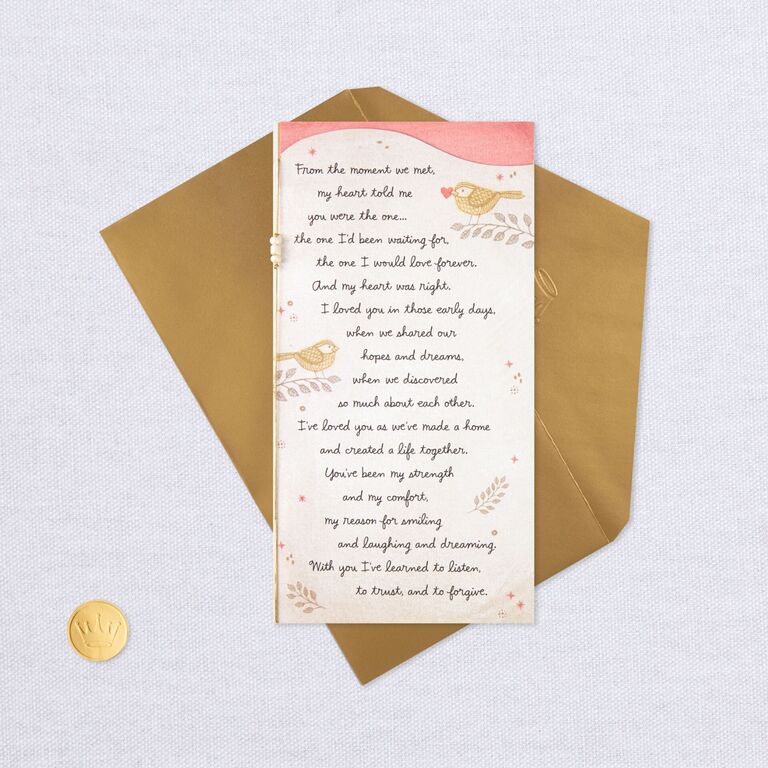 From the moment we met,
my heart told me
you were the one...
the one I'd been waiting for,
the one I would love forever.
And my heart was right.
I loved you in those early days,
when we shared our
hopes and dreams,
when we discovered
so much about each other.
I've loved you as we've made a home
and created a life together.
You've been my strength
and my comfort,
my reason for smiling
and laughing and dreaming.
With you I've learned to listen,
to trust, and to forgive.